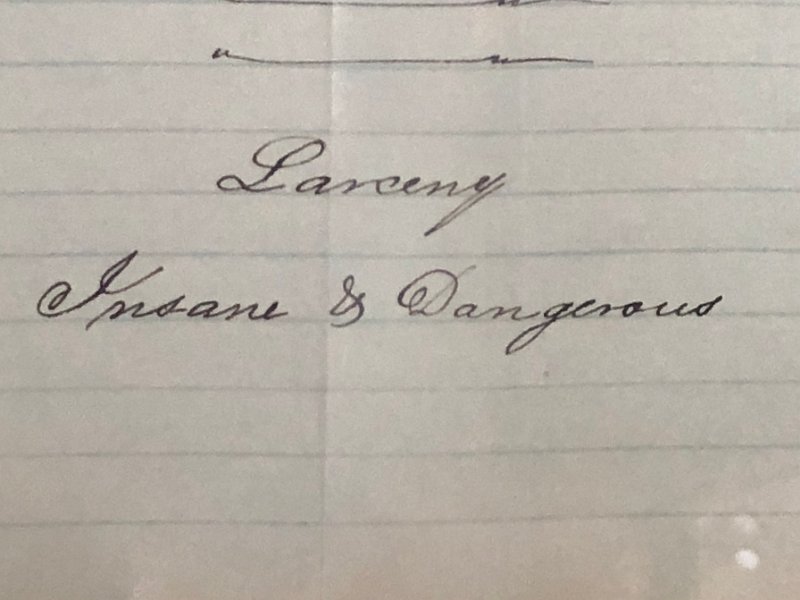 Larceny
Insane & Dangerous